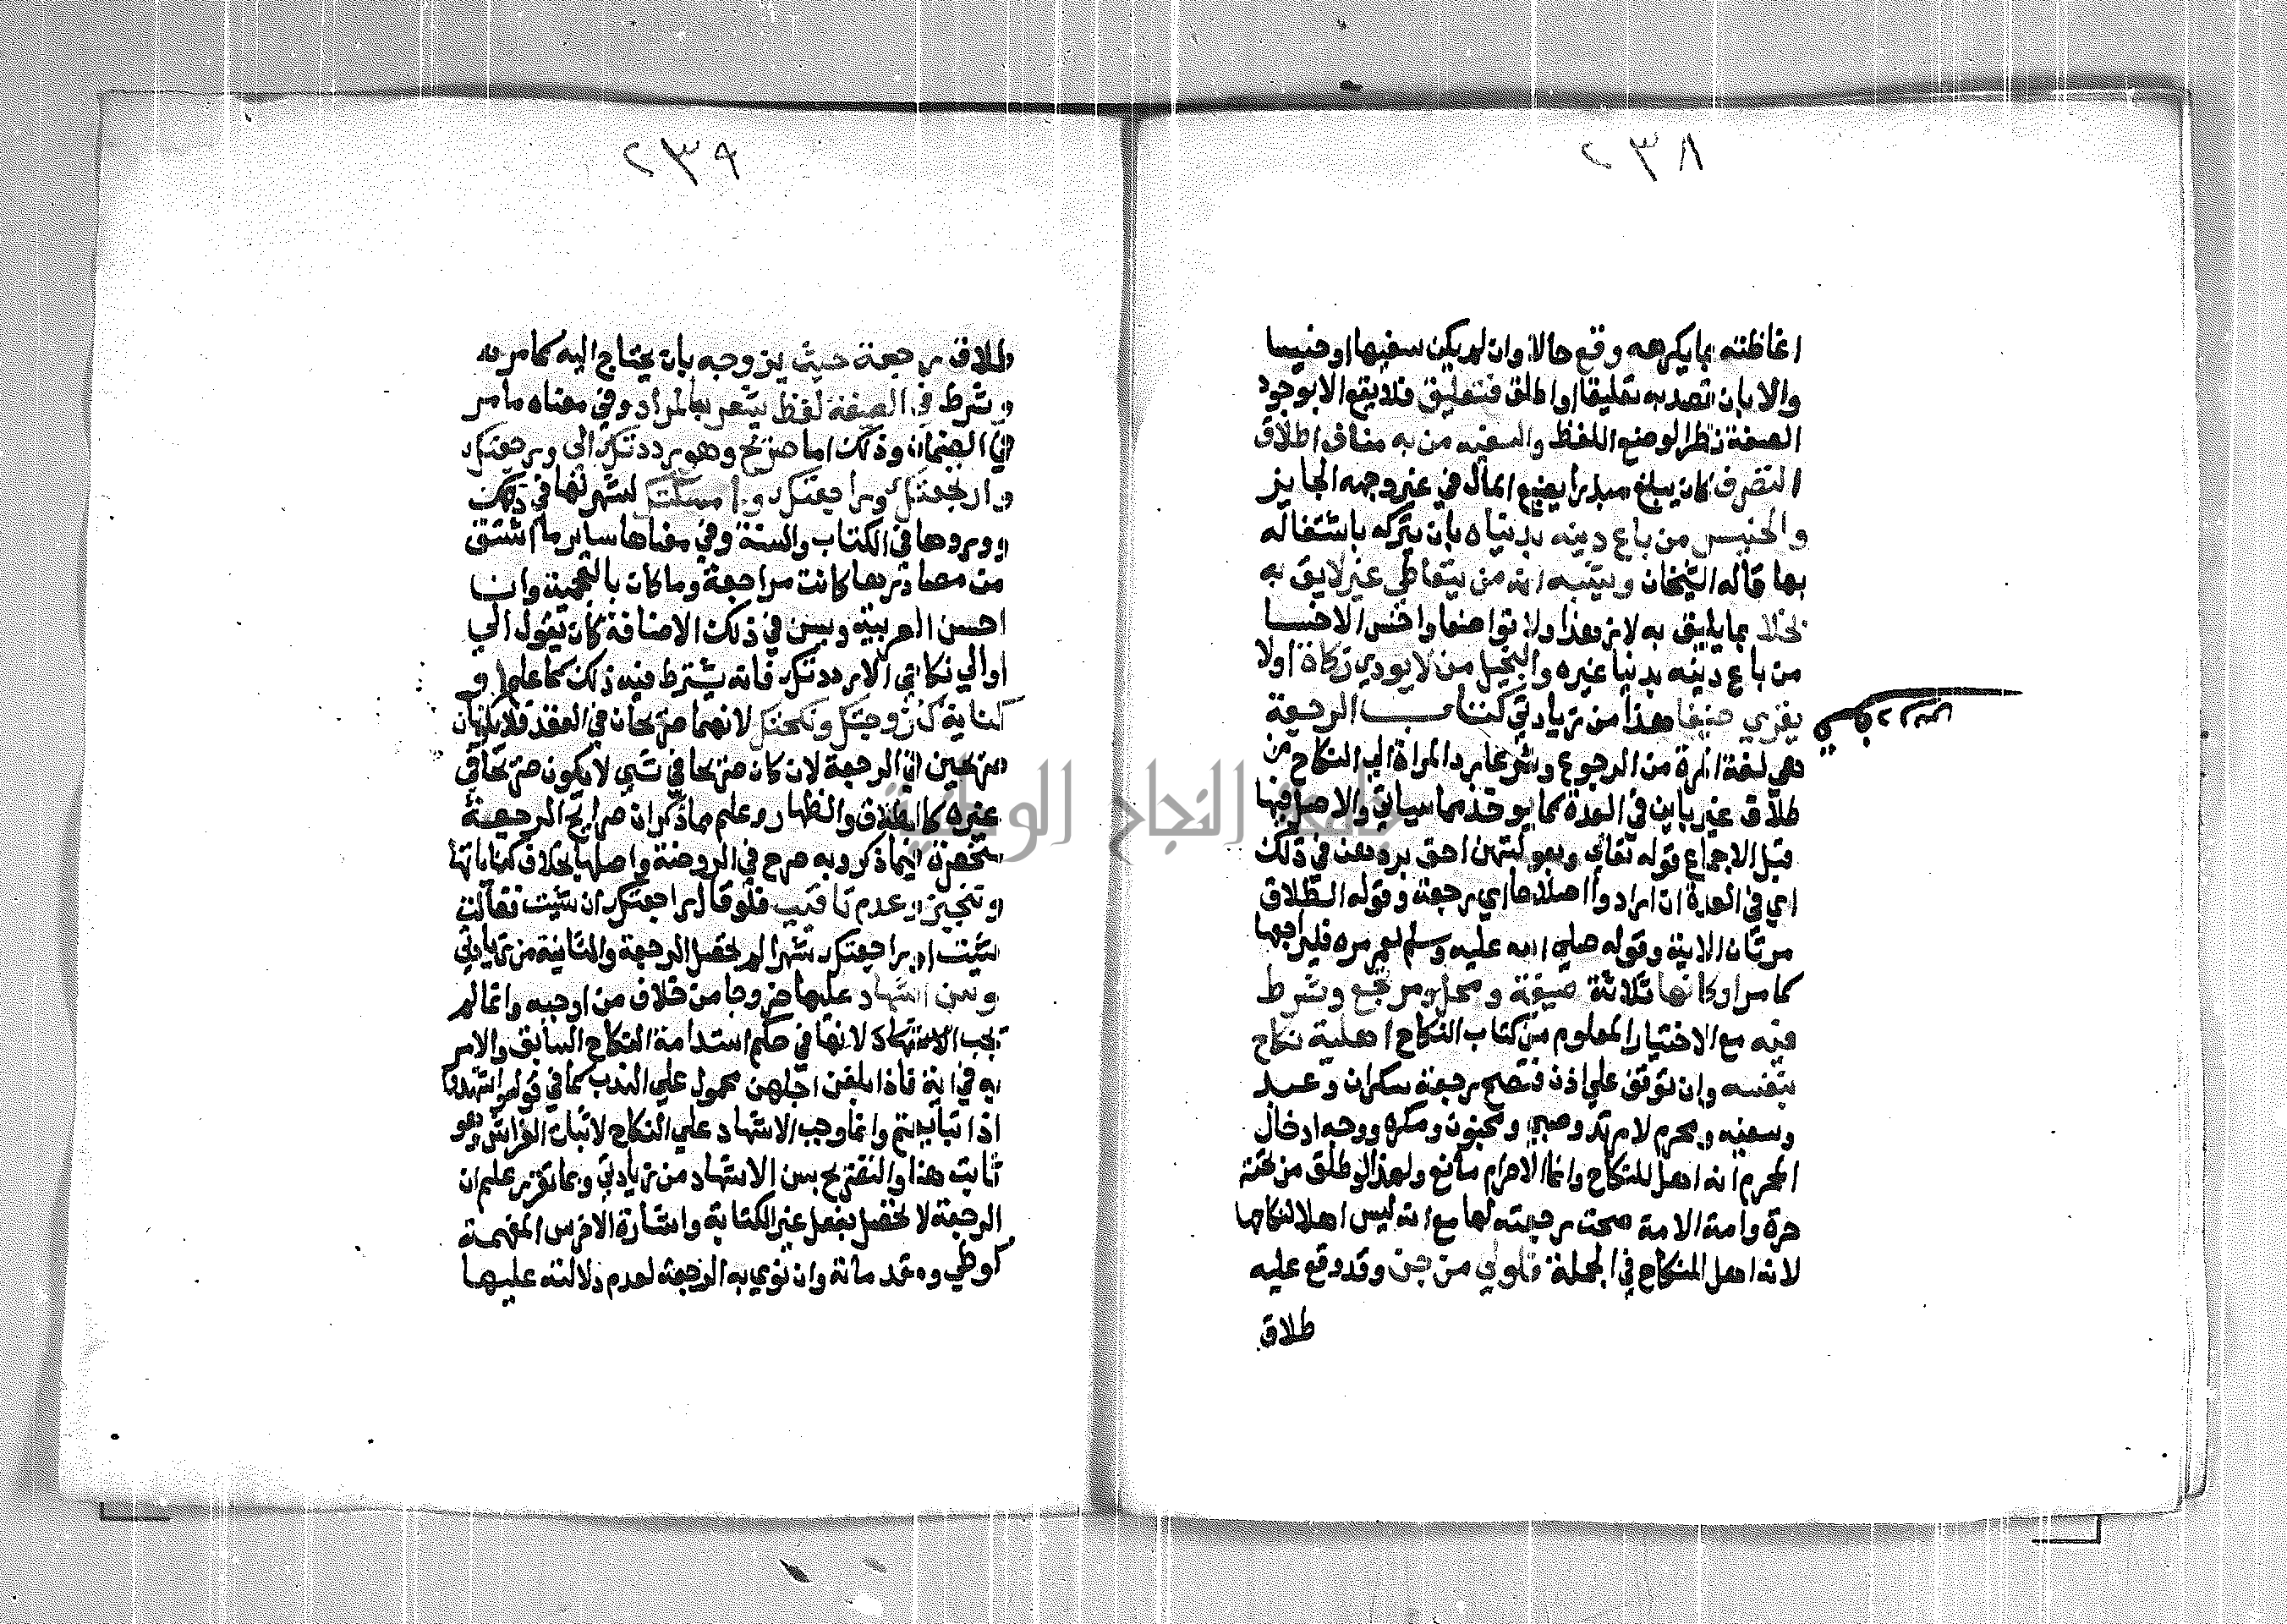 ٢٣٨
اغاظته بما يكرهه وقع حالا وان لم يكن سفيها او خسيسا
والا بان قصد به تعليقا او اطلق فتعليق فلا يقع الا بوجود
الصفة نظرا لوضع اللفظ والسفيه من به مناف اطلاق
التصرف كان يبلغ مبذرا يضيع المال في غير وجهه الجايز
والخسيس من باع دينه بدنياه بان يتركه باشتغاله
بها قاله الشيخان ويشبه انه من يتعاطي غير لايق به
بخلا بما يليق به لا تواضعا واخس الاخسا
من باع دينه بدنيا غيره والبخيل من لا يودي زكاة اولا
يقري ضيفا هذا من زيادتي كتاب الرجعة
هي لغة المرة من الرجوع وشرعا رد المراة الي النكاح من
طلاق غير باين في العدة كما يوخذ مما سياتي والاصل فيها
قبل الاجماع قوله تعالي وبعولتهن احق بردهن في ذلك
اي في العدة ان ارادوا اصلاحا اي رجعة وقوله الطلاق
مرتان الاية وقوله صلي الله عليه وسلم لعمر مره فليراجعها
كما مر اركانها ثلاثة صيغة ومحل ومرتجع وشرط
فيه مع الاختيار المعلوم من كتاب النكاح اهلية نكاح
بنفسه وان توقف علي اذن فتصح رجعة سكران وعبد
وسفيه ومحرم لا مرتد وصبي ومجنون ومكره ووجه ادخال
المحرم انه اهل للنكاح وانما الاحرام مانع ولهذا لو طلق من تحته
حرة وامة الامة صحت رجعته لها مع انه ليس اهلا لنكاحها
لانه اهل للنكاح في الجملة فلولي من جن وقد وقع عليه
طلاق
٢٣٩
طلاق رجعة حيث يزوجه بان يحتاج اليه كما مر
وشرط في الصيغة لفظ يشعر بالمراد وفي معناه ما مر
في الضمان وذلك اما صريح وهو رددتك الي ورجعتك
وارتجعتك وراجعتك وامسكتك لشهرتها في ذلك
وورودها في الكتاب والسنة وفي معناها ساير ما اشتق
من مصادرها كانت مراجعة وما كان بالعجمية وان
احسن العربية ويسن في ذلك الاضافة كان يقول الي
او الي نكاحي الا رددتك فانه يشترط فيه ذلك كما علم او
كناية كتزوجتك ونكحتك لانهما صريحان في العقد فلا يكونان
صريحين في الرجعة لان ما كان صريحا في شي لا يكون صريحا في
غيره كالطلاق والظهار وعلم مما ذكر ان صرايح الرجعة
منحصرة فيما ذكر وبه صرح في الروضة واصلها بخلاف كناياتها
وتنجيز وعدم تاقيت فلو قال راجعتك ان شيت فقالت
شيت او راجعتك شهرا لم تحصل الرجعة والثانية من زيادتي
وسن اشهاد عليها خروجا من خلاف من اوجبه وانما لم
يجب الاشهاد لانها في حكم استدامة النكاح السابق والامر
به في اية فاذا بلغن اجلهن محمول علي الندب كما في قوله واشهدوا
اذا تبايعتم وانما وجب الاشهاد علي النكاح لاثبات الفراش وهو
ثابت هنا والتصريح بسن الاشهاد من زيادتي وبما تقرر علم ان
الرجعة لا تحصل بفعل غير الكتابة واشارة الاخرس المفهمة
كوطي ومقدماته وان نوي به الرجعة لعدم دلالته عليها
جامعة النجاح الوطنية